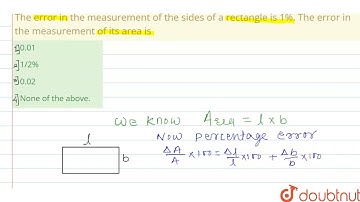 The error in the measurement of the sides of a rectangle is 1%. The error in
the measurement of its area is.
1] 0.01
2] 1/2%
3] 0.02
4] None of the above.
We know Area = l × b
Now percentage error
ΔA/A × 100 = Δl/l × 100 + Δb/b × 100
l
b
doubtnut